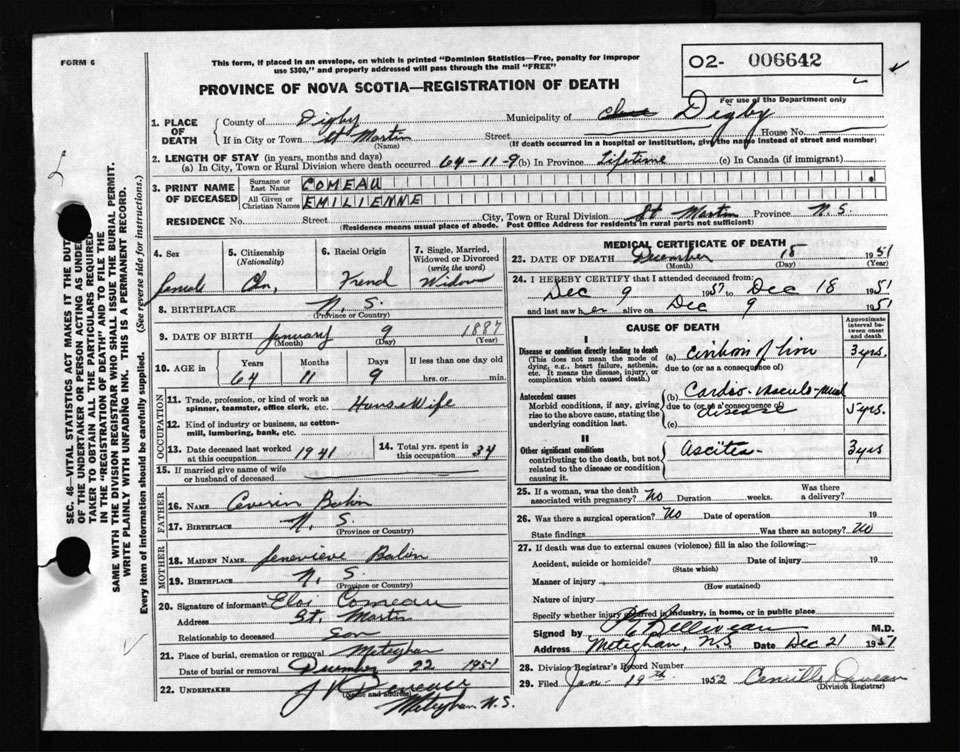 FORM 6
This form, if placed in an envelope, on which is printed "Dominion Statistics—Free, penalty for improper
use $300," and properly addressed will pass through the mail "FREE"
PROVINCE OF NOVA SCOTIA—REGISTRATION OF DEATH
O2- 006642
For use of the Department only
1. PLACE OF DEATH
County of Digby Municipality of Digby
If in City or Town St Martin Street House No.
(Name) (If death occurred in a hospital or institution, give the name instead of street and number)
2. LENGTH OF STAY (in years, months and days)
(a) In City, Town or Rural Division where death occurred 64-11-9 (b) In Province Lifetime (c) In Canada (if immigrant)
3. PRINT NAME OF DECEASED
Surname or Last Name COMEAU
All Given or Christian Names EMILIENNE
RESIDENCE No. Street City, Town or Rural Division St Martin Province N.S.
(Residence means usual place of abode. Post Office Address for residents in rural parts not sufficient)
4. Sex
female
5. Citizenship
(Nationality)
Cn.
6. Racial Origin
Frend
7. Single, Married, Widowed or Divorced
(write the word)
Widow
8. BIRTHPLACE N. S.
(Province or Country)
9. DATE OF BIRTH January 9 1887
(Month) (Day) (Year)
10. AGE in Years Months Days If less than one day old
64 11 9 hrs. or min.
OCCUPATION
11. Trade, profession, or kind of work as
spinner, teamster, office clerk, etc. HouseWife
12. Kind of industry or business, as cotton-
mill, lumbering, bank, etc.
13. Date deceased last worked
at this occupation 1941
14. Total yrs. spent in
this occupation 34
15. If married give name of wife
or husband of deceased
FATHER
16. NAME
17. BIRTHPLACE N. S.
(Province or Country)
MOTHER
18. MAIDEN NAME Genevieve
19. BIRTHPLACE N. S.
(Province or Country)
20. Signature of informant Eloi Comeau
Address St. Martin
Relationship to deceased Son
21. Place of burial, cremation or removal Meteghan
Date of burial or removal December 22 1951
22. UNDERTAKER J
(Name and address)
Meteghan N.S.
MEDICAL CERTIFICATE OF DEATH
23. DATE OF DEATH December 18 1951
(Month) (Day) (Year)
24. I HEREBY CERTIFY that I attended deceased from:
Dec 9 1951 to Dec 18 1951
and last saw her alive on Dec 9 1951
CAUSE OF DEATH
Approximate interval between onset and death
I
Disease or condition directly leading to death
(This does not mean the mode of
dying, e.g., heart failure, asthenia,
etc. It means the disease, injury, or
complication which caused death.)
(a) of liver 3 yrs.
due to (or as a consequence of)
Antecedent causes
Morbid conditions, if any, giving
rise to the above cause, stating the
underlying condition last.
(b) Cardio-vasculo-renal
due to (or as a consequence of)
disease 5 yrs.
(c)
II
Other significant conditions
contributing to the death, but not
related to the disease or condition
causing it.
Ascites 3 yrs
25. If a woman, was the death
associated with pregnancy? No Duration weeks. Was there a delivery?
26. Was there a surgical operation? No Date of operation 19
State findings Was there an autopsy? No
27. If death was due to external causes (violence) fill in also the following:—
Accident, suicide or homicide? Date of injury 19
(State which)
Manner of injury
(How sustained)
Nature of injury
Specify whether injury occurred in industry, in home, or in public place
Signed by Belliveau M.D.
Address Meteghan, N.S. Date Dec 21 1951
28. Division Registrar's Record Number
29. Filed Jan- 19th 1952
(Division Registrar)
SEC. 46—VITAL STATISTICS ACT MAKES IT THE DUTY
OF THE UNDERTAKER OR PERSON ACTING AS UNDER-
TAKER TO OBTAIN ALL THE PARTICULARS REQUIRED
IN THE "REGISTRATION OF DEATH" AND TO FILE THE
SAME WITH THE DIVISION REGISTRAR WHO SHALL ISSUE THE BURIAL PERMIT.
WRITE PLAINLY WITH UNFADING INK. THIS IS A PERMANENT RECORD.
Every item of information should be carefully supplied. (See reverse side for instructions.)